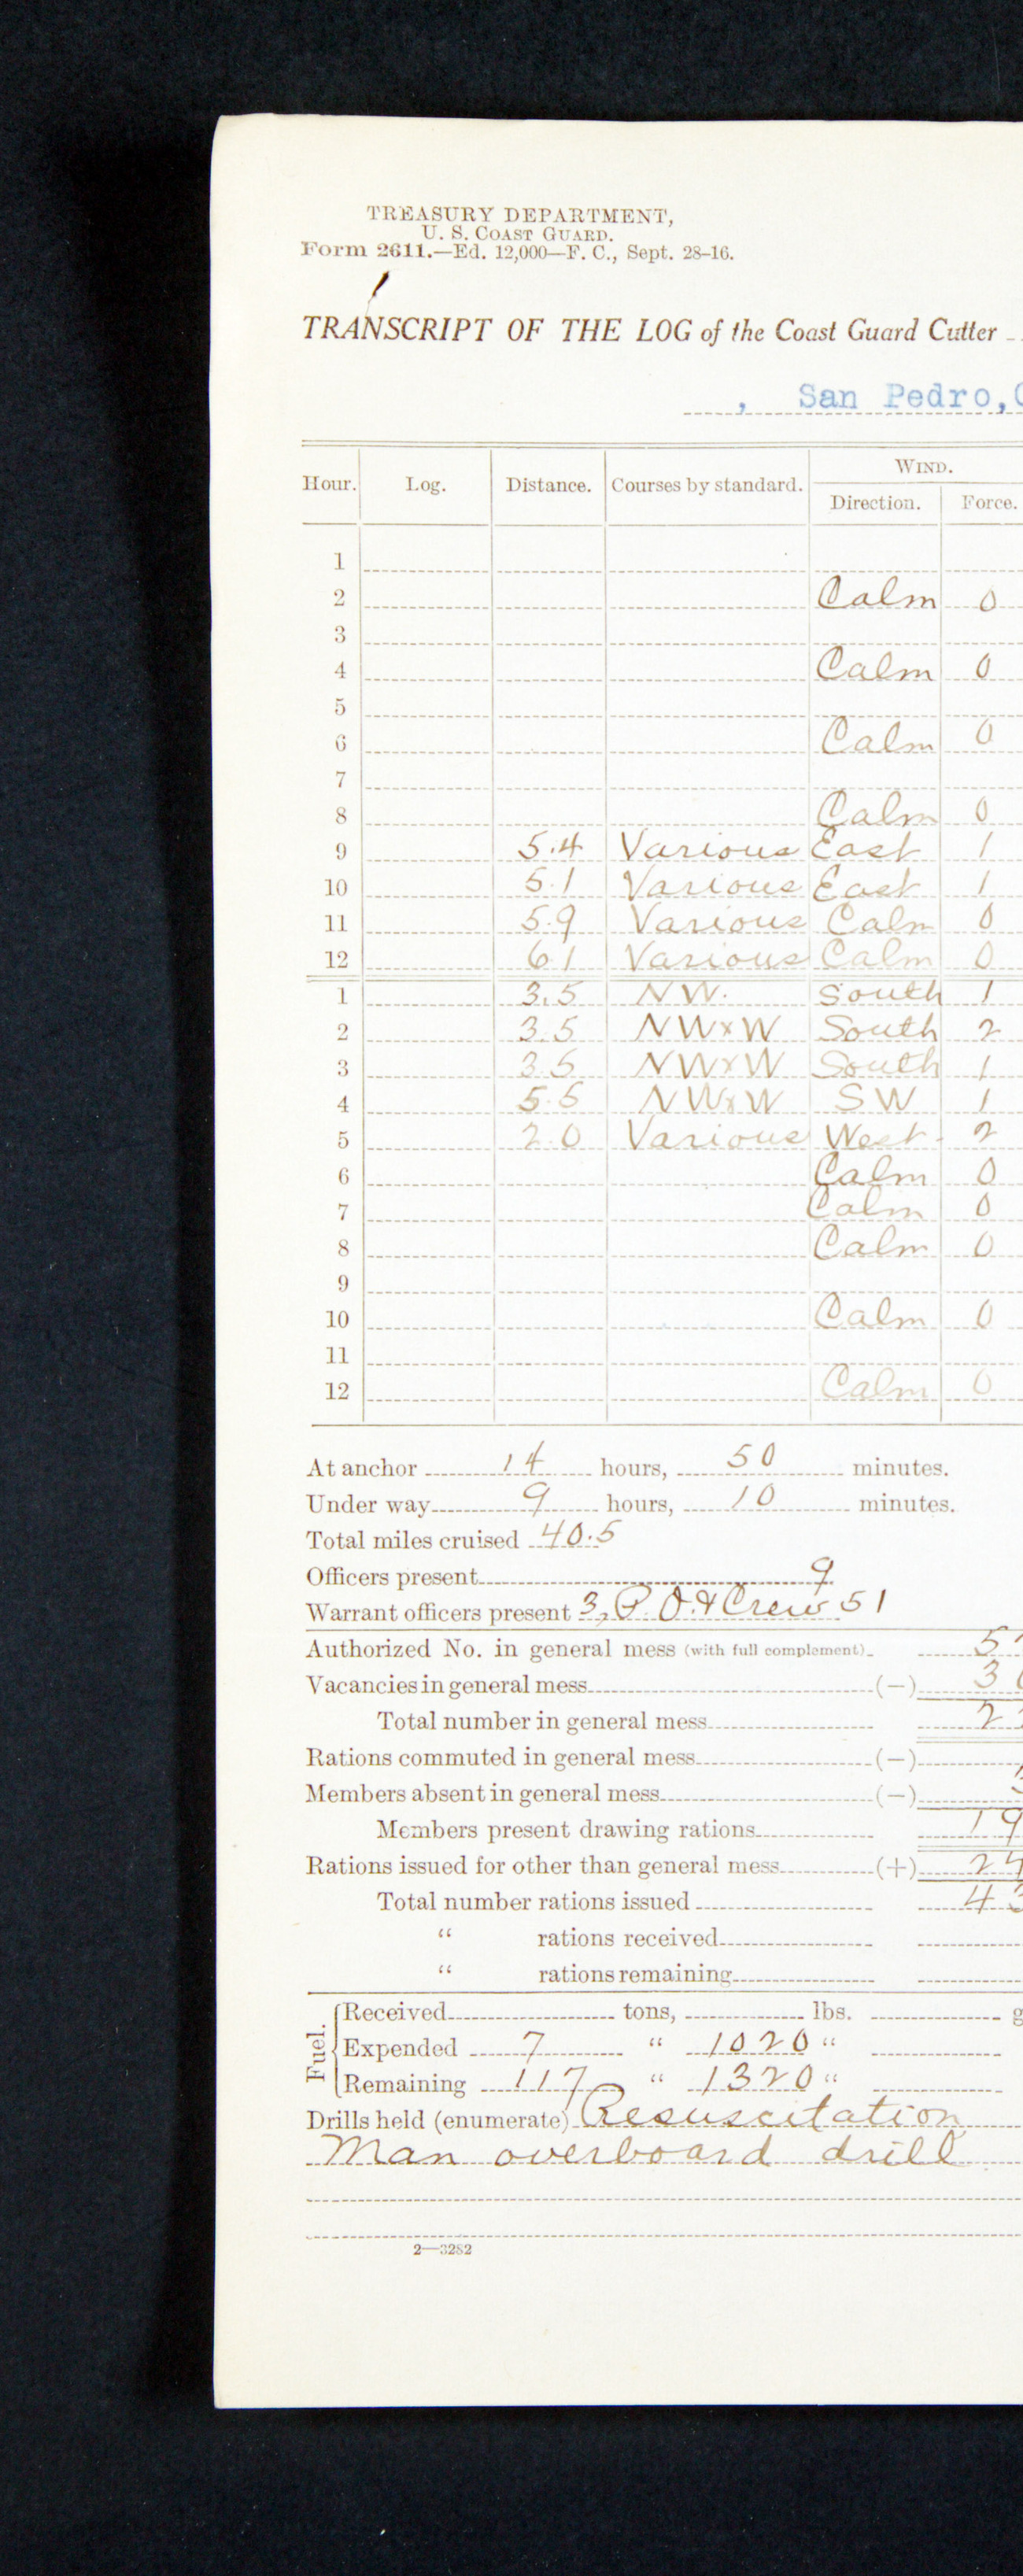 TREASURY DEPARTMENT,
U. S. COAST GUARD.
Form 2611.—Ed. 12,000—F. C., Sept. 28-16.
TRANSCRIPT OF THE LOG of the Coast Guard Cutter
, San Pedro,
WIND.
Hour. Log. Distance. Courses by standard. Direction. Force.
1
2 Calm 0
3
4 Calm 0
5
6 Calm 0
7
8 Calm 0
9 5.4 Various East 1
10 5.1 Various East 1
11 5.9 Various Calm 0
12 6.1 Various Calm 0
1 3.5 NW. South 1
2 3.5 NWxW South 2
3 3.5 NWxW South 1
4 5.5 NWxW SW 1
5 2.0 Various West 2
6 Calm 0
7 Calm 0
8 Calm 0
9
10 Calm 0
11
12 Calm 0
At anchor 14 hours, 50 minutes.
Under way 9 hours, 10 minutes.
Total miles cruised 40.5
Officers present 9
Warrant officers present 3, P. O. & Crew 51
Authorized No. in general mess (with full complement) 5
Vacancies in general mess (—) 3
Total number in general mess 2
Rations commuted in general mess (—)
Members absent in general mess (—)
Members present drawing rations 19
Rations issued for other than general mess (+) 24
Total number rations issued 43
“ rations received
“ rations remaining
Fuel.
Received tons, lbs. g
Expended 7 “ 1020 “
Remaining 117 “ 1320 “
Drills held (enumerate) Resuscitation
Man overboard drill
2—3282